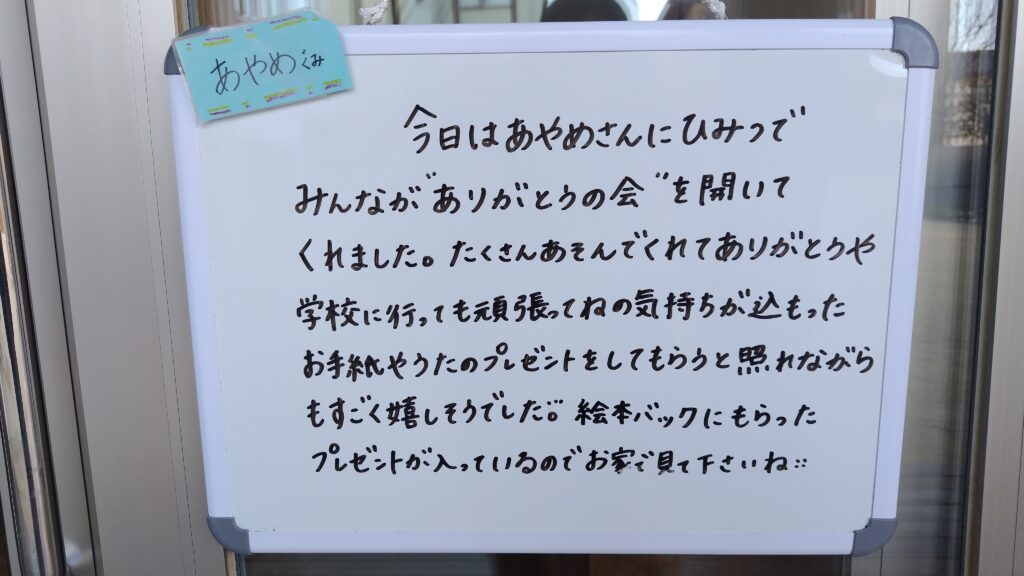 あやめぐみ
今日はあやめさんにひみつで
みんなが"ありがとうの会"を開いて
くれました。たくさんあそんでくれてありがとうや
学校に行っても頑張ってねの気持ちが込もった
お手紙やうたのプレゼントをしてもらうと照れながら
もすごく嬉しそうでした。絵本バックにもらった
プレゼントが入っているのでお家で見て下さいね